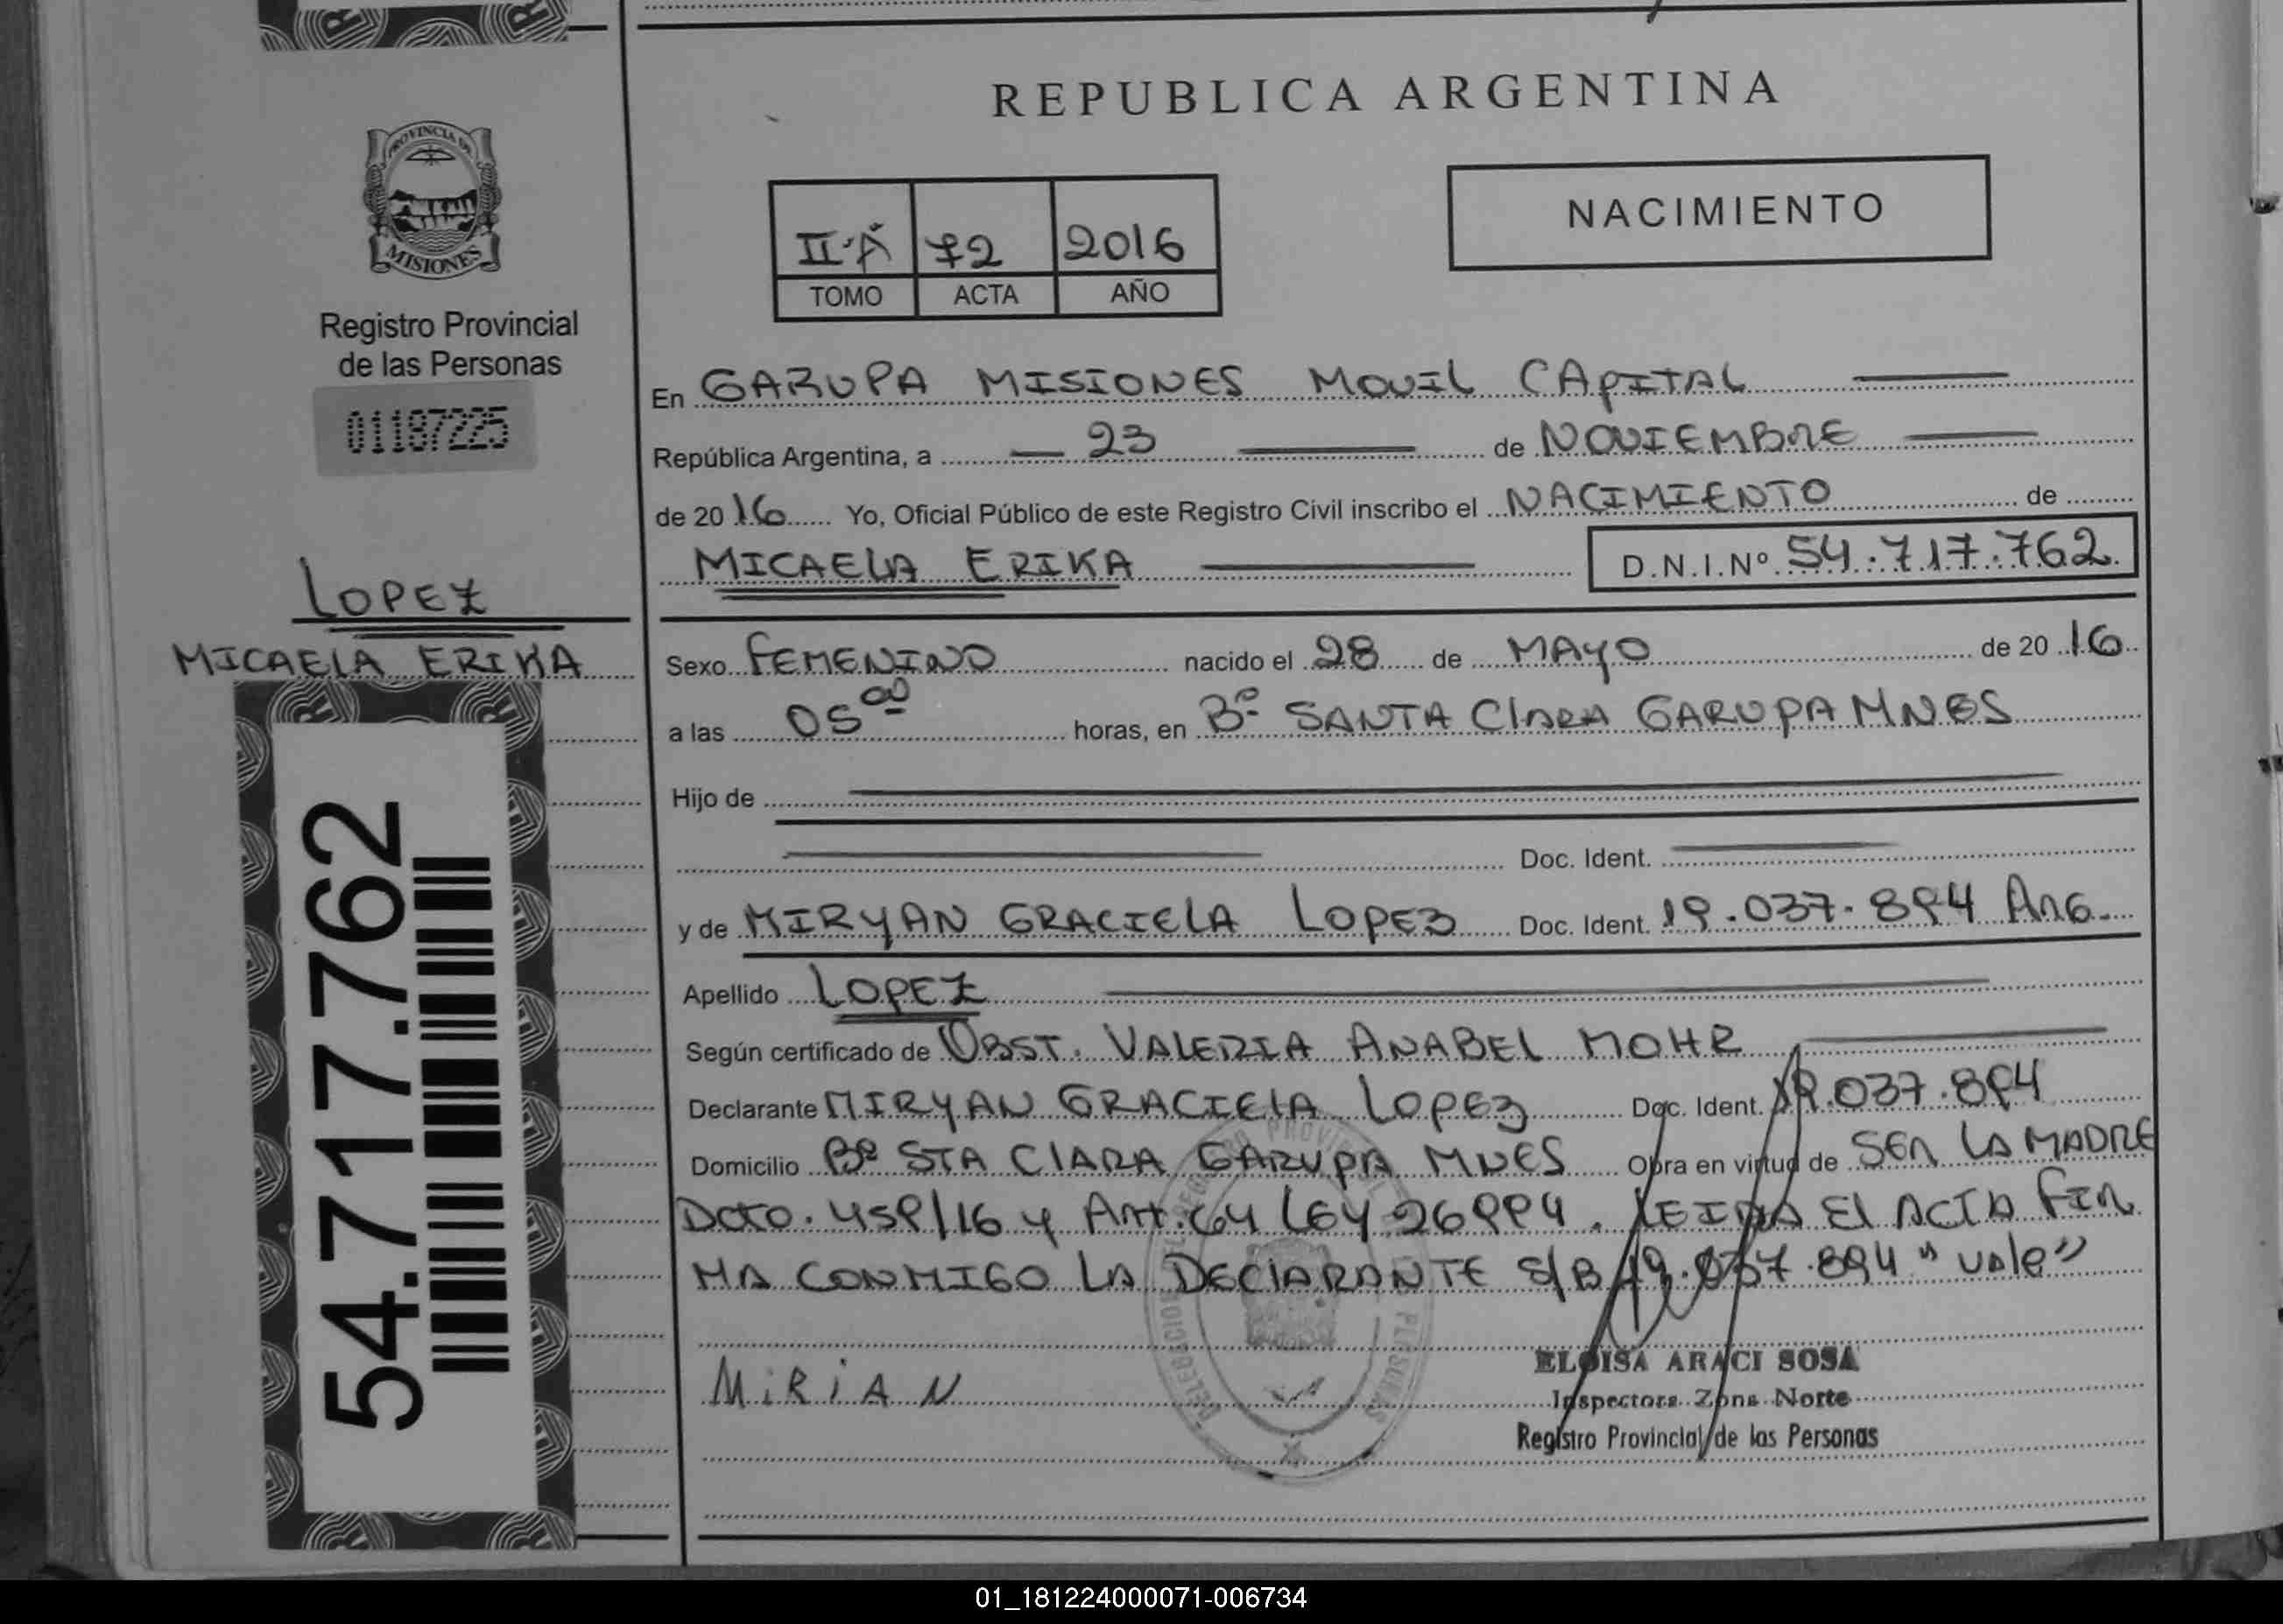 REPUBLICA ARGENTINA
PROVINCIA DE
MISIONES
Registro Provincial
de las Personas
01187225
II-A 72 2016
TOMO ACTA AÑO
NACIMIENTO
En GARUPA MISIONES MOVIL CAPITAL
República Argentina, a 23 de NOVIEMBRE
de 2016 Yo, Oficial Público de este Registro Civil inscribo el NACIMIENTO de
MICAELA ERIKA D.N.I.Nº 54.717.762
LOPEZ
MICAELA ERIKA
54.717.762
Sexo FEMENINO nacido el 28 de MAYO de 2016
a las 05 00 horas, en Bº SANTA CLARA GARUPA MNES
Hijo de
Doc. Ident.
y de MIRYAN GRACIELA LOPEZ Doc. Ident. 19.037.894 ARG.
Apellido LOPEZ
Según certificado de OBST. VALERIA ANABEL MOHR
Declarante MIRYAN GRACIELA LOPEZ Doc. Ident. 19.037.894
Domicilio Bº STA CLARA GARUPA MNES Obra en virtud de SER LA MADRE
Dcto. 459/16 y Art. 64 LEY 26994. LEIDA El ACTA FIR
MA CONMIGO LA DECLARANTE S/B 19.037.894 "vale"
MiRiAN
ELOISA ARACI SOSA
Inspectora Zona Norte
Registro Provincial de las Personas
01_181224000071-006734